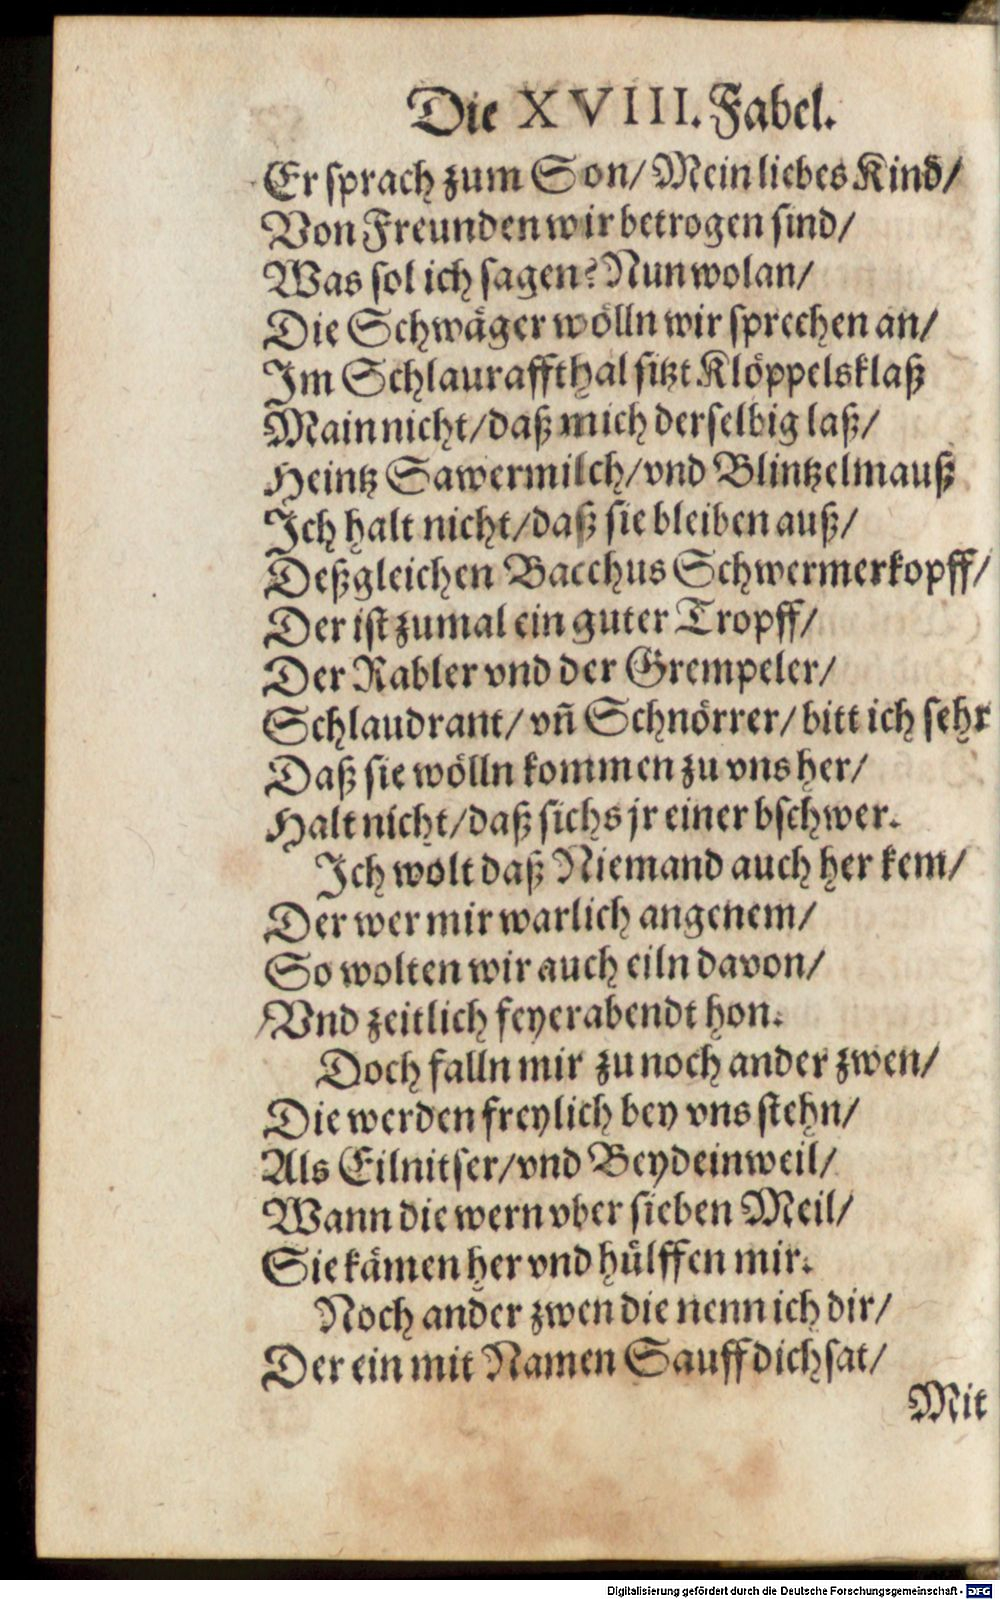 Die XVIII. Fabel.
Er sprach zum Son/ Mein liebes Kind/
Von Freunden wir betrogen sind/
Was sol ich sagen? Nun wolan/
Die Schwäger wölln wir sprechen an/
Im Schlauraffthal sitzt Klöppelsklaß
Main nicht/ daß mich derselbig laß/
Heintz Sawermilch/ vnd Blintzelmauß
Ich halt nicht/ daß sie bleiben auß/
Deßgleichen Bacchus Schwermerkopff/
Der ist zumal ein guter Tropff/
Der Rabler vnd der Grempeler/
Schlaudrant/ vñ Schnörrer/ bitt ich sehr
Daß sie wölln kommen zu vns her/
Halt nicht/ daß sichs jr einer bschwer.
Ich wolt daß Niemand auch her kem/
Der wer mir warlich angenem/
So wolten wir auch eiln davon/
Vnd zeitlich feyerabendt hon.
Doch falln mir zu noch ander zwen/
Die werden freylich bey vns stehn/
Als Eilnitser/ vnd Beydeinweil/
Wann die wern vber sieben Meil/
Sie kämen her vnd hülffen mir.
Noch ander zwen die nenn ich dir/
Der ein mit Namen Sauff dich sat/
Mit
Digitalisierung gefördert durch die Deutsche Forschungsgemeinschaft - DFG